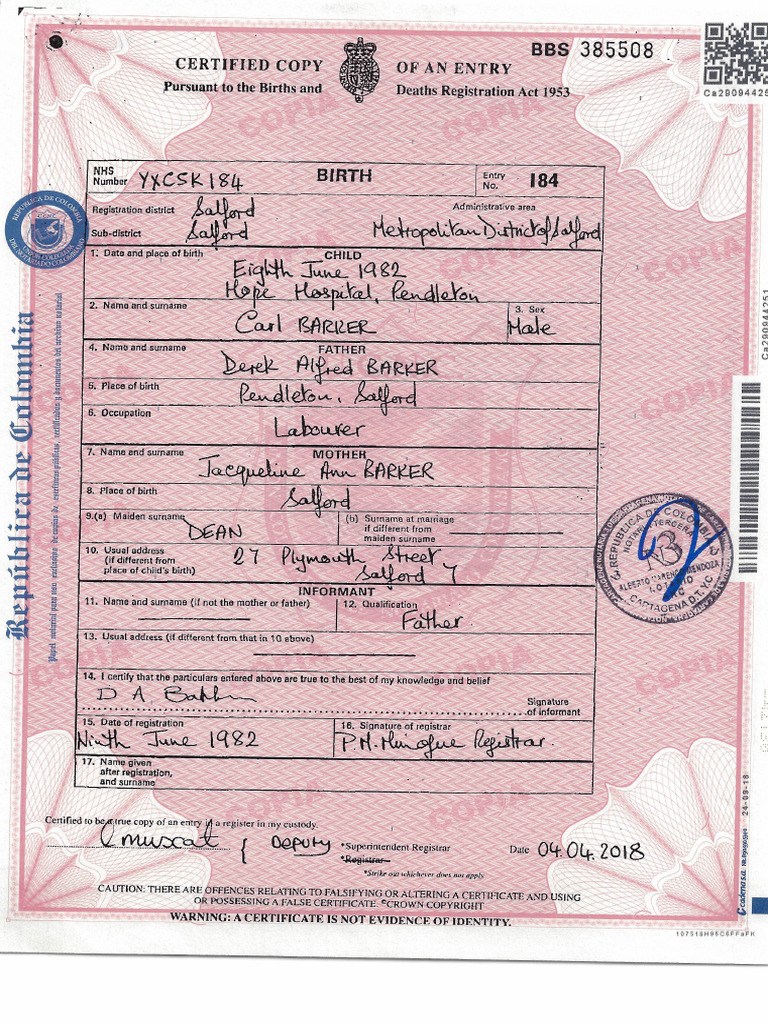 BBS 385508
CERTIFIED COPY OF AN ENTRY
Pursuant to the Births and Deaths Registration Act 1953
Ca29094425
COPIA
NHS Number YXCSK184 BIRTH Entry No. 184
Registration district Salford Administrative area
Sub-district Salford Metropolitan District of Salford
1. Date and place of birth CHILD
Eighth June 1982
Hope Hospital, Pendleton
2. Name and surname 3. Sex
Carl BARKER Male
4. Name and surname FATHER
Derek Alfred BARKER
5. Place of birth
Pendleton, Salford
6. Occupation
Labourer
7. Name and surname MOTHER
Jacqueline Ann BARKER
8. Place of birth
Salford
9.(a) Maiden surname DEAN (b) Surname at marriage if different from maiden surname
10. Usual address (if different from place of child's birth) 27 Plymouth Street
Salford 7
INFORMANT
11. Name and surname (if not the mother or father) 12. Qualification
Father
13. Usual address (if different from that in 10 above)
14. I certify that the particulars entered above are true to the best of my knowledge and belief
D A Signature of informant
15. Date of registration 16. Signature of registrar
Ninth June 1982 P.M. Minogue Registrar.
17. Name given after registration, and surname
Certified to be a true copy of an entry in a register in my custody.
C muscat { DEPUTY *Superintendent Registrar Date 04.04.2018
*Registrar
*Strike out whichever does not apply
CAUTION: THERE ARE OFFENCES RELATING TO FALSIFYING OR ALTERING A CERTIFICATE AND USING
OR POSSESSING A FALSE CERTIFICATE. ©CROWN COPYRIGHT
WARNING: A CERTIFICATE IS NOT EVIDENCE OF IDENTITY.
República de Colombia
Papel notarial para uso exclusivo de copias de escrituras públicas, certificados y documentos del archivo notarial
REPÚBLICA DE COLOMBIA
Ca290944251
REPUBLICA DE COLOMBIA
NOTARIA TERCERA
N3
CARTAGENA D.T. Y C.
cadena s.a.
24-09-18
107518H95C6FFaFK